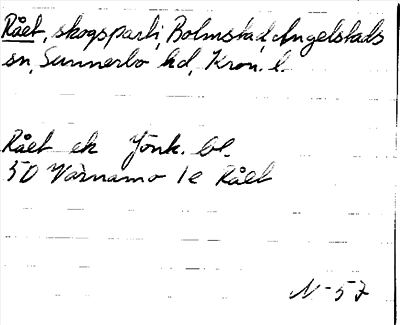 Rået, skogsparti, Bolmstad, Angelstads
sn, Sunnerbo hd, Kron. l.
Rået ek Jönk. bl.
5D Värnamo 1e Rået
N-57